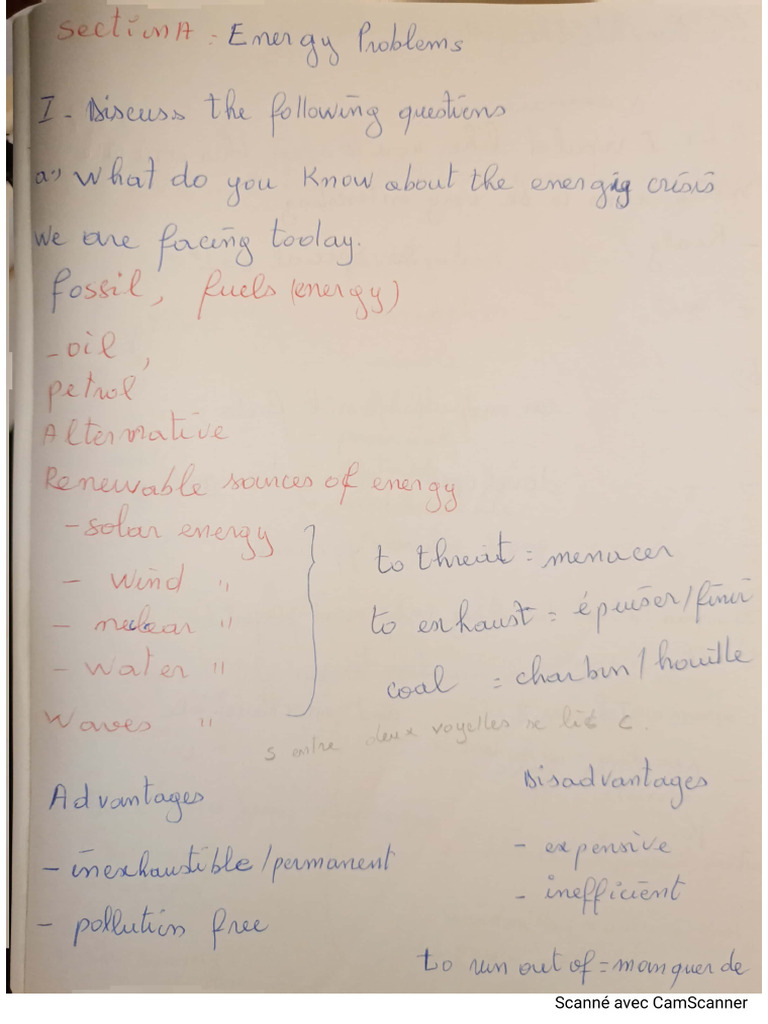 Section A : Energy Problems
I - Discuss the following questions
a) What do you know about the energy crisis
we are facing today.
fossil, fuels (energy)
- oil,
petrol
Alternative
Renewable sources of energy
- solar energy
- wind "
- nuclear "
- water "
Waves "
to threat = menacer
to exhaust = épuiser/finir
coal = charbon/houille
s entre deux voyelles se lit
Advantages
- inexhaustible/permanent
- pollution free
Disadvantages
- expensive
- inefficient
to run out of = manquer de
Scanné avec CamScanner